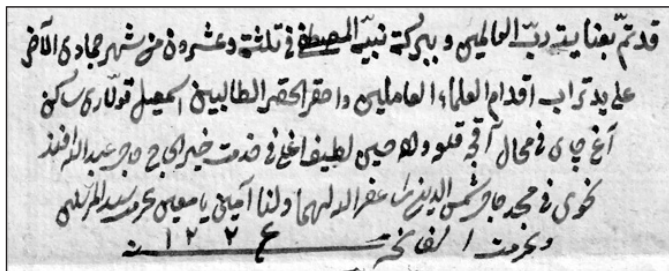 قد تمّ بعنايت ربّ العالمين و ببركة نبيّه المصطفى فى ثلثة و عشرون من شهر جمادى الآخر
على يد تراب اقدام العلماء العاملين و احقر الحقر الطالبين اسمعيل قولّارى ساكن
آغ چاى فى محال آقچه قلعه و له حين لطيف اغلى فى خدمت خير الحاج ملا عبد الله افند
نخوى فى مسجد ملا شمس الدين غفر الله لهما و لنا آمين يا معين بحرمت سيد المرسلين
و بحرمت الفاتحه ١٢٢٤